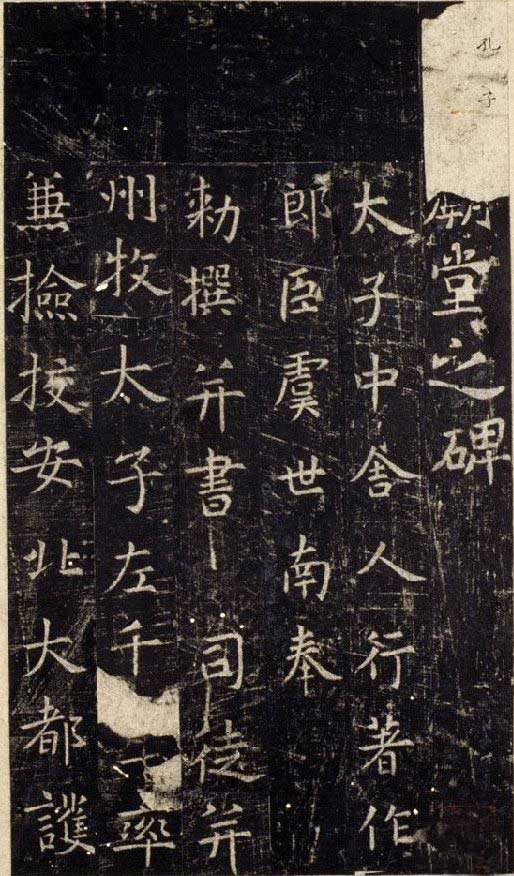 孔子
廟堂之碑
太子中舍人行著作
郎臣虞世南奉
勅撰并書 司徒并
州牧太子左千牛率
兼撿挍安北大都護